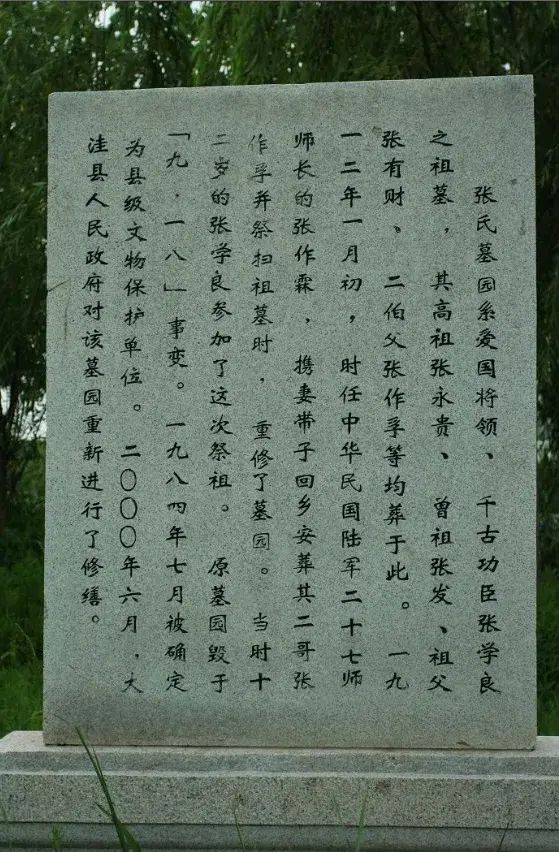 张氏墓园系爱国将领、千古功臣张学良
之祖墓，其高祖张永贵、曾祖张发、祖父
张有财、二伯父张作孚等均葬于此。一九
一二年一月初，时任中华民国陆军二十七师
师长的张作霖，携妻带子回乡安葬其二哥张
作孚并祭扫祖墓时，重修了墓园。当时十
二岁的张学良参加了这次祭祖。原墓园毁于
「九．一八」事变。一九八四年七月被确定
为县级文物保护单位。二〇〇〇年六月，大
洼县人民政府对该墓园重新进行了修缮。